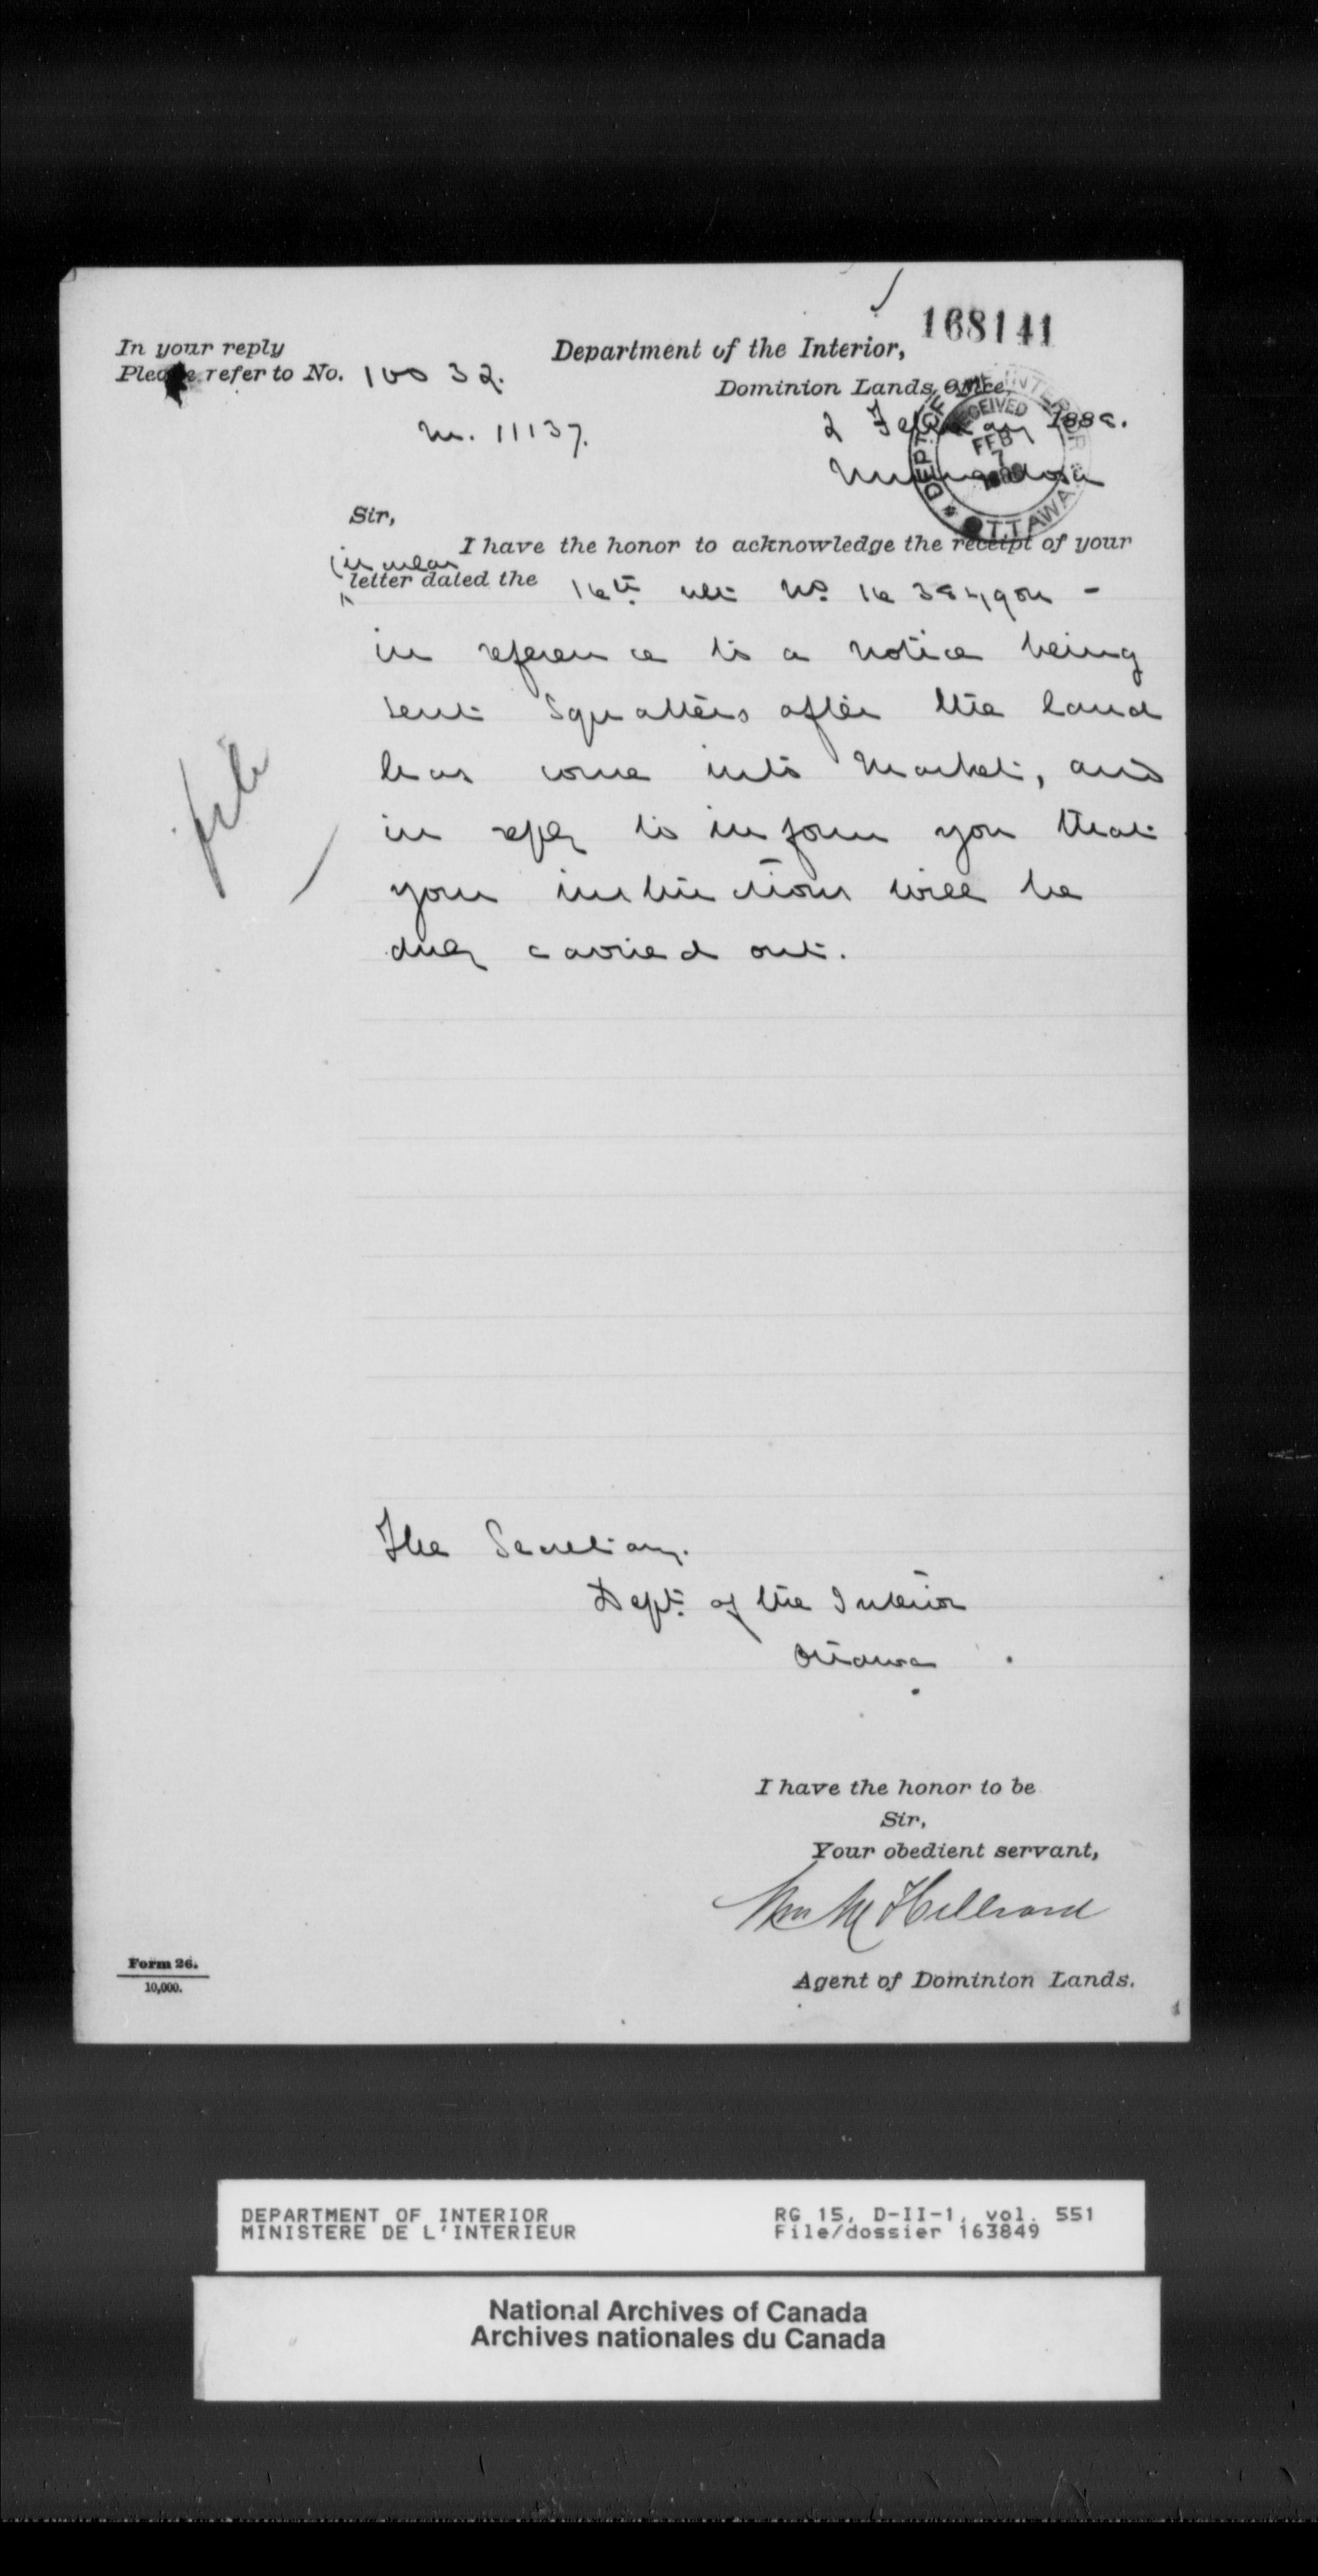 168141
In your reply
Please refer to No. 10032.
Department of the Interior,
Dominion Lands Office,
M. 11137.
2 February 1888.
Minnedosa
DEPT. OF THE INTERIOR
RECEIVED
FEB
7
OTTAWA
Sir,
I have the honor to acknowledge the receipt of your
letter dated the 16th ult No.
in reference to a notice being
sent Squatters after the land
has come into Market, and
in reply to inform you that
your instructions will be
duly carried out.
file
The Secretary.
Dept. of the Interior
Ottawa
I have the honor to be
Sir,
Your obedient servant,
Wm M Hilliard
Agent of Dominion Lands.
Form 26.
10,000.
DEPARTMENT OF INTERIOR
MINISTERE DE L'INTERIEUR
RG 15, D-II-1, vol. 551
File/dossier 163849
National Archives of Canada
Archives nationales du Canada